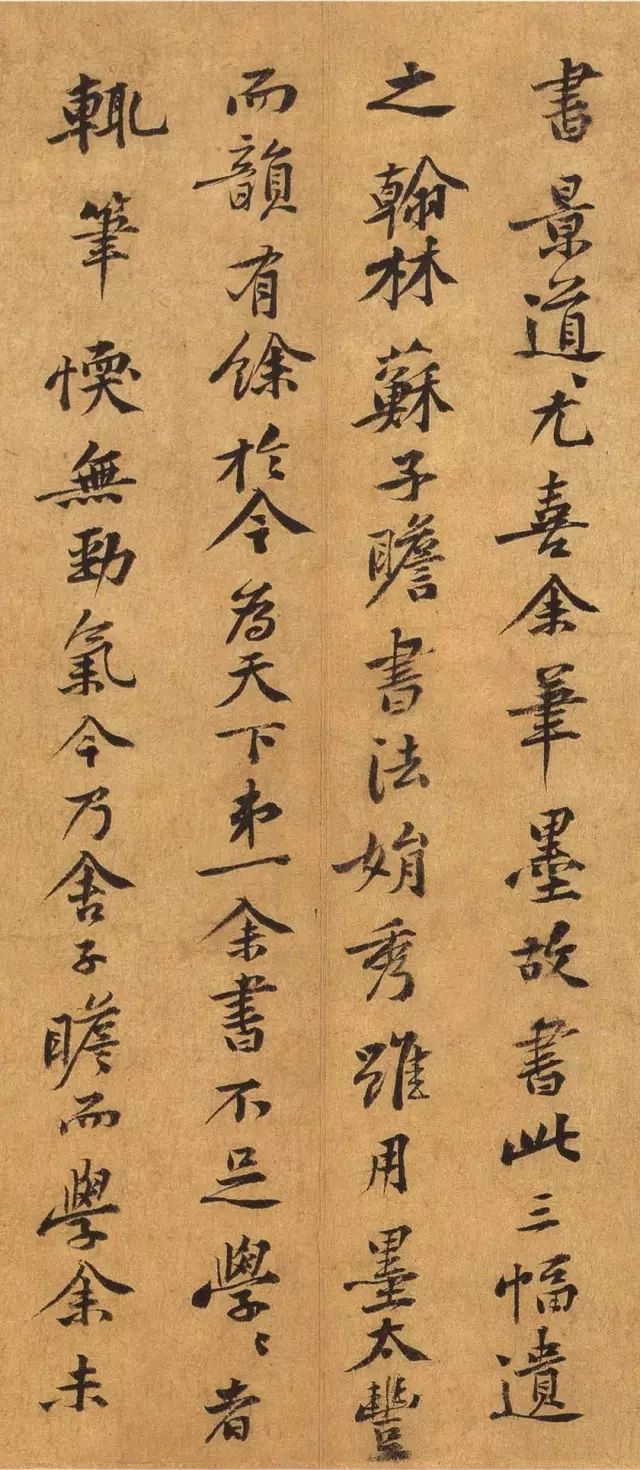 書景道〻尤喜余筆墨故書此三幅遺
之翰林蘇子瞻書法娟秀雖用墨太豐
而韻有餘於今為天下第一余書不足學〻者
輒筆愞無勁氣今乃舍子瞻而學余未